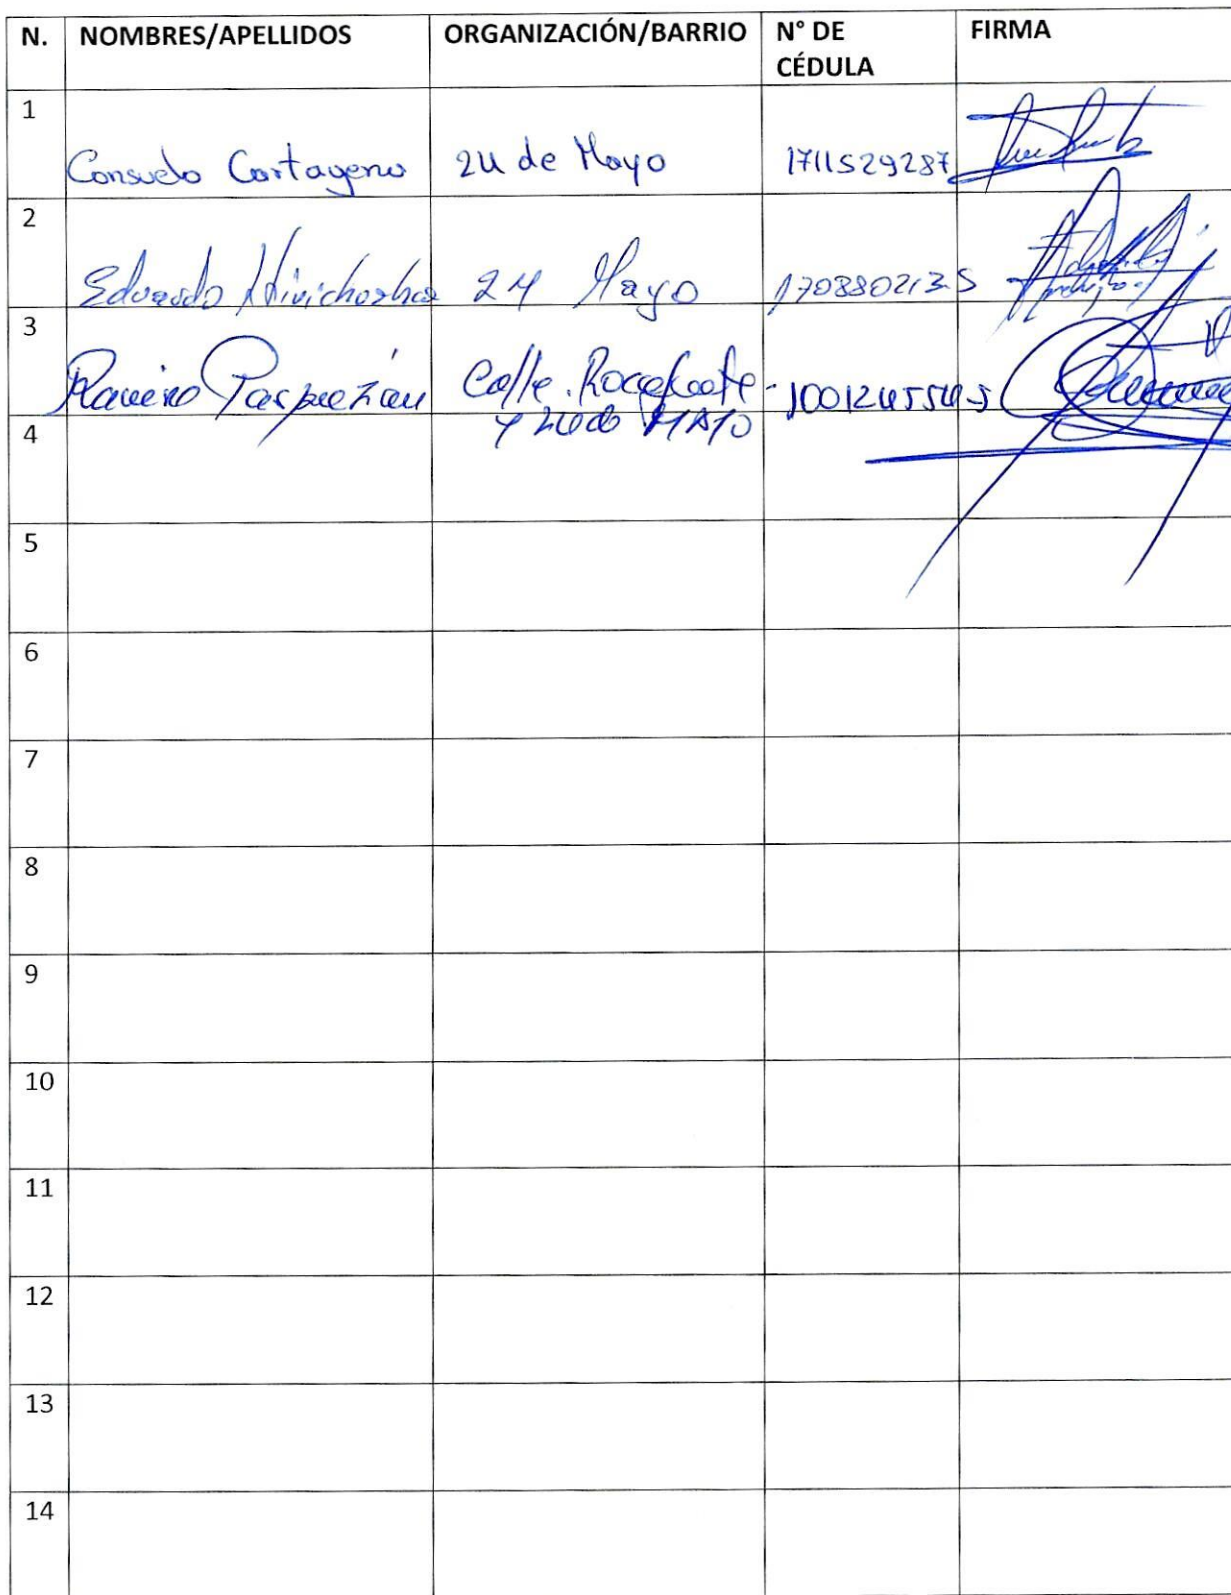 N. NOMBRES/APELLIDOS ORGANIZACIÓN/BARRIO N° DE CÉDULA FIRMA
1 Consuelo Cartagena 24 de Mayo 1711529287
2 Eduardo 24 Mayo 170880213-5
3 Ramiro Calle. Rocafuerte
y 24 de MAYO
4
5
6
7
8
9
10
11
12
13
14